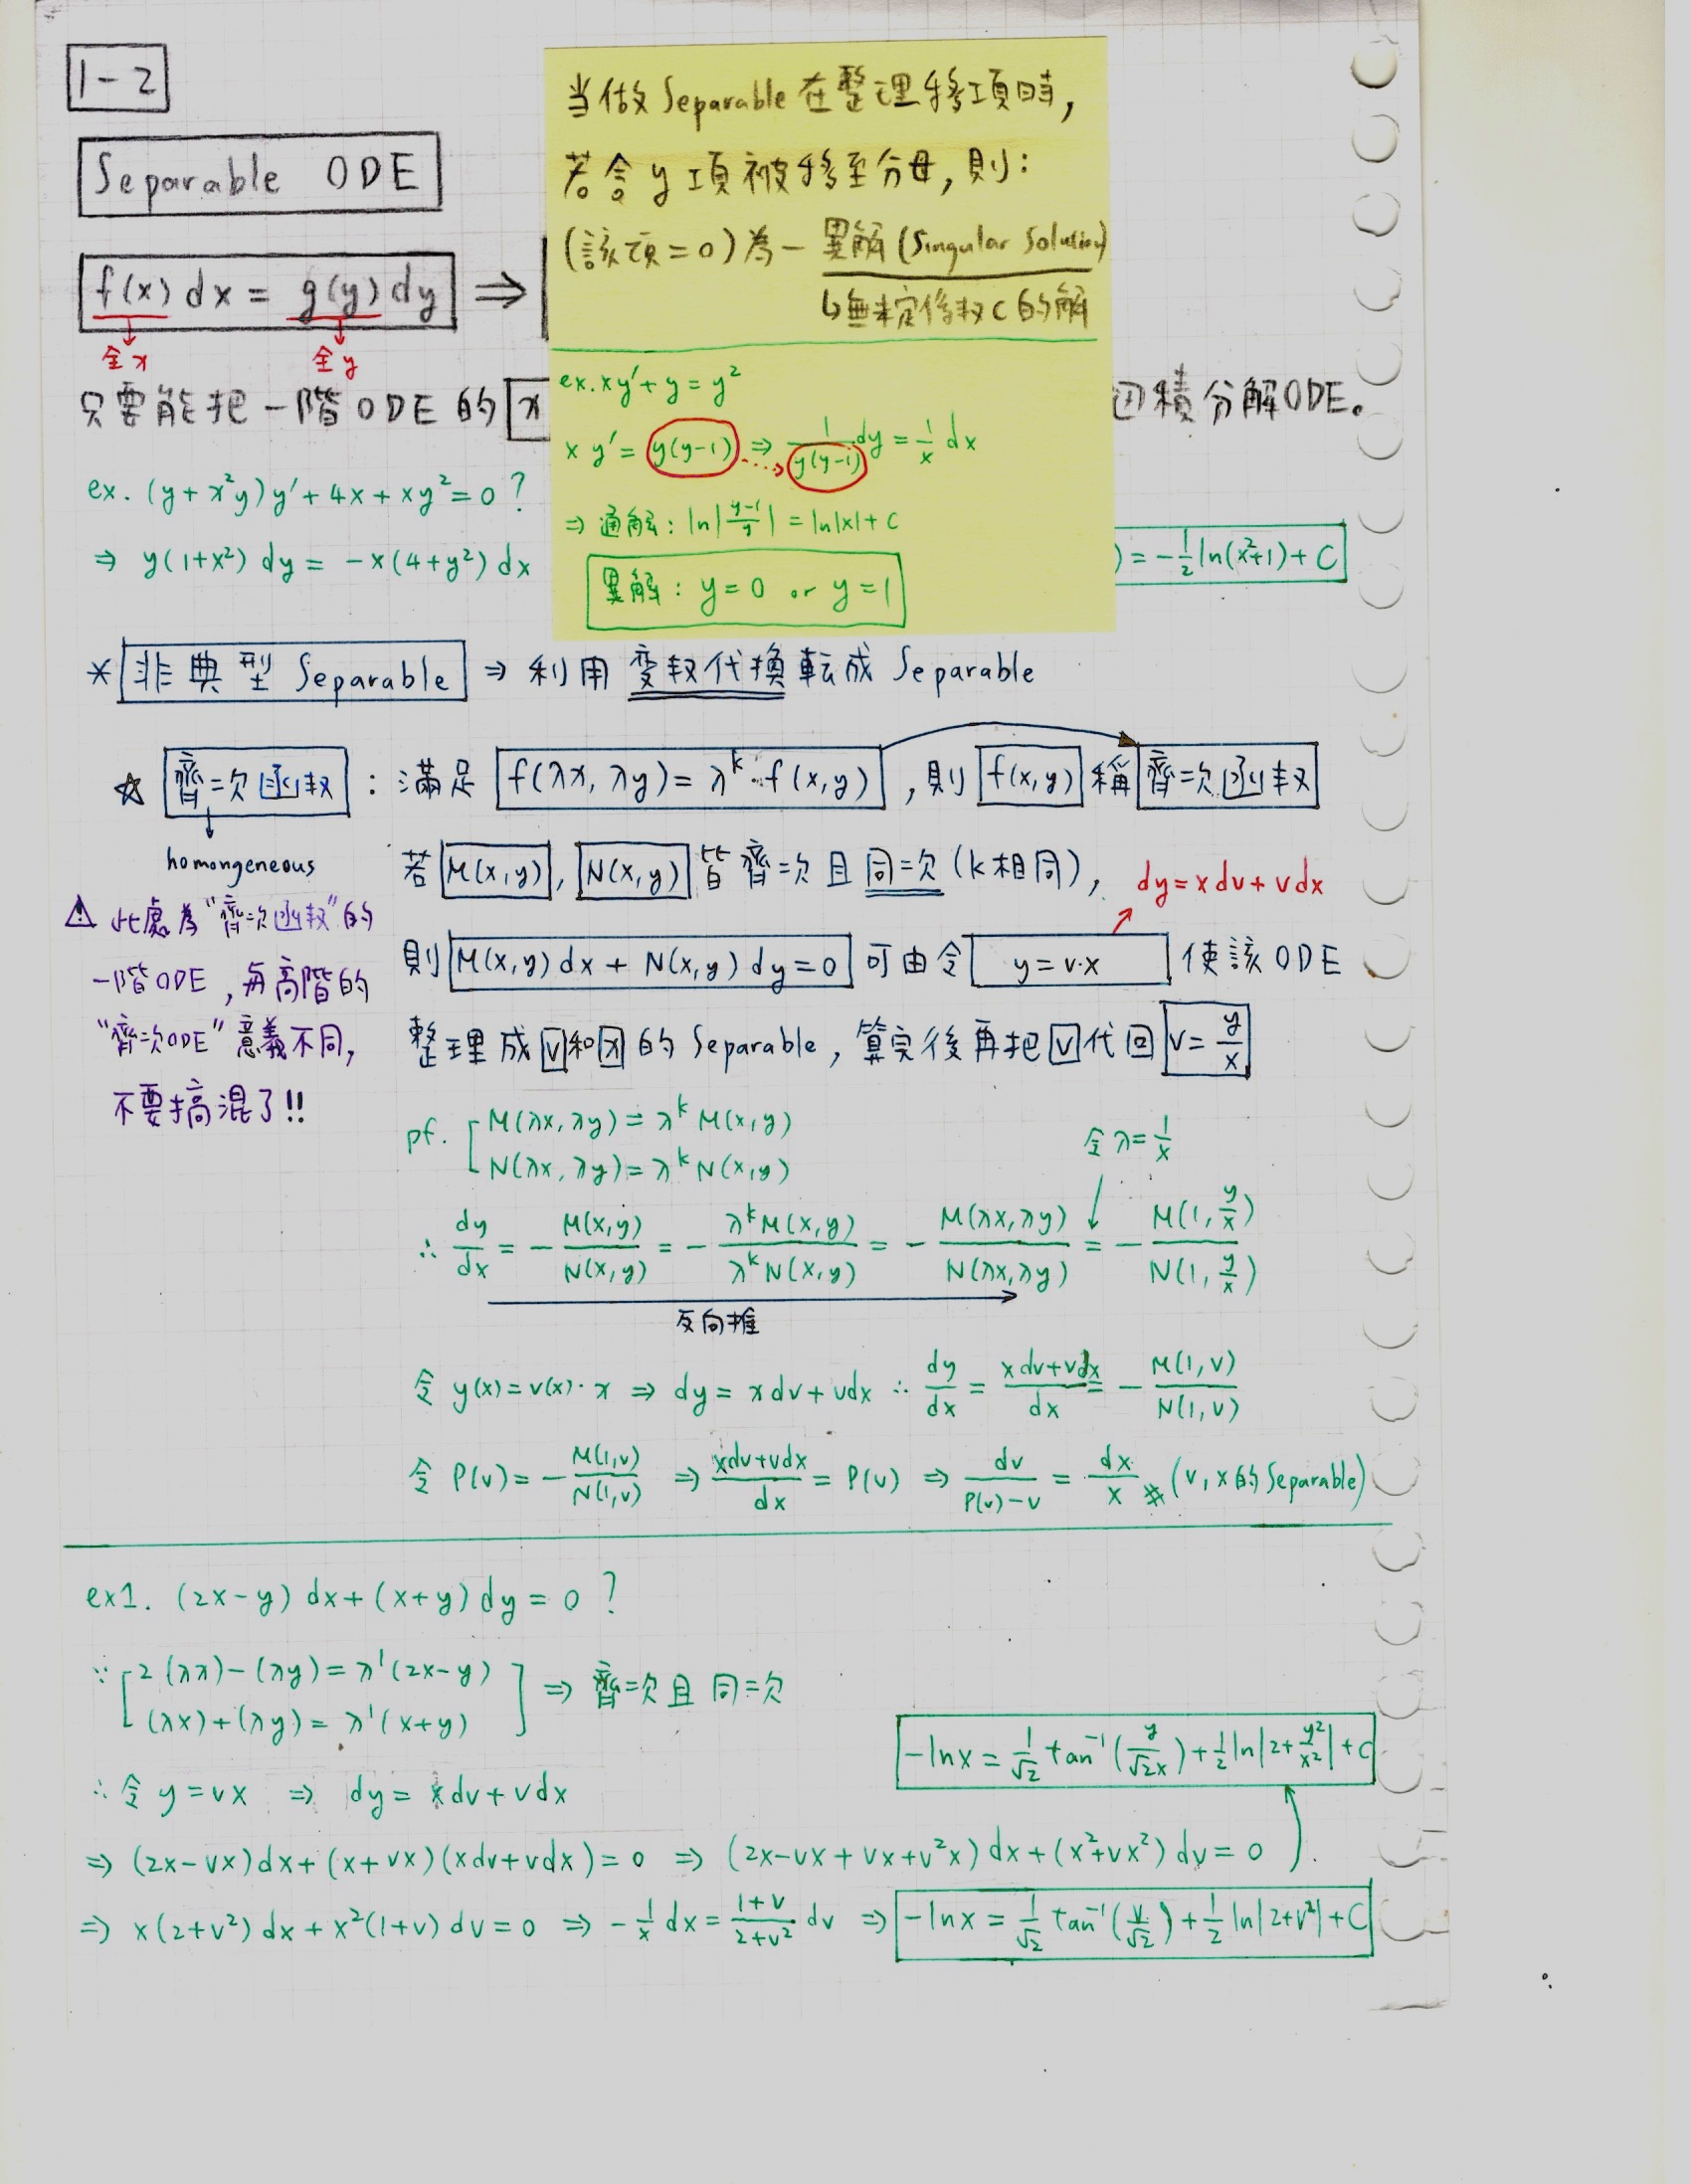 1-2
Separable ODE
f(x) dx = g(y) dy ⇒
全x 全y
只要能把一階ODE的 x
迴積分解ODE。
ex. (y+x²y)y'+4x+xy²=0 ?
⇒ y(1+x²) dy = -x(4+y²) dx
) = -1/2 ln(x²+1)+C
当做 Separable 在整理移項時,
若含y項被移至分母,則:
(該項=0)為一異解(Singular Solution)
↳無未定係数C的解
ex. xy'+y=y²
x y' = y(y-1) ⇒ 1/(y(y-1)) dy = 1/x dx
⇒ 通解: ln|(y-1)/y| = ln|x|+C
異解: y=0 or y=1
* 非典型 Separable ⇒ 利用変数代換転成 Separable
☆ 齊次函数 : 滿足 f(λx, λy)=λ^k·f(x,y) ,則 f(x,y) 稱 齊次函数
homongeneous
若 M(x,y), N(x,y) 皆齊次且同次(k相同),
dy=xdv+vdx
則 M(x,y) dx + N(x,y) dy=0 可由令 y=v·x 使該ODE
整理成 v 和 x 的 Separable, 算完後再把 v 代回 v=y/x
⚠ 此處為"齊次函数"的
一階ODE,与高階的
"齊次ODE"意義不同,
不要搞混了!!
pf. [ M(λx, λy)=λ^k M(x,y)
N(λx, λy)=λ^k N(x,y)
令λ=1/x
∴ dy/dx = - M(x,y)/N(x,y) = - λ^k M(x,y)/λ^k N(x,y) = - M(λx,λy)/N(λx,λy) = - M(1,y/x)/N(1,y/x)
反向推
令 y(x)=v(x)·x ⇒ dy=xdv+vdx ∴ dy/dx = (xdv+vdx)/dx = - M(1,v)/N(1,v)
令 P(v)= - M(1,v)/N(1,v) ⇒ (xdv+vdx)/dx = P(v) ⇒ dv/(P(v)-v) = dx/x # (v,x的Separable)
ex1. (2x-y) dx+(x+y) dy = 0 ?
∵ [ 2(λx)-(λy)=λ¹(2x-y)
(λx)+(λy)=λ¹(x+y) ] ⇒ 齊次且同次
-lnx = 1/√2 tan⁻¹(y/√2x)+1/2 ln|2+y²/x²|+C
∴ 令 y=vx ⇒ dy=xdv+vdx
⇒ (2x-vx)dx+(x+vx)(xdv+vdx)=0 ⇒ (2x-vx+vx+v²x) dx+(x²+vx²) dv=0
⇒ x(2+v²) dx + x²(1+v) dv=0 ⇒ -1/x dx = (1+v)/(2+v²) dv ⇒ -lnx = 1/√2 tan⁻¹(v/√2)+1/2 ln|2+v²|+C